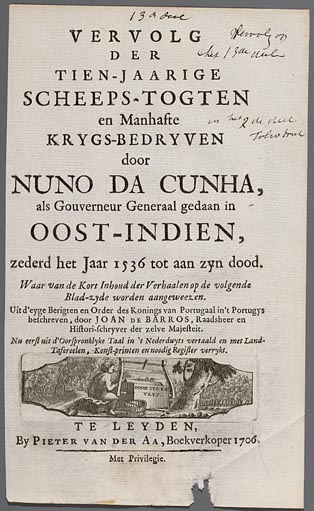 13de deel
Vervolg op
het 13de deel
VERVOLG
DER
TIEN-JAARIGE
SCHEEPS-TOGTEN
en Manhafte
in het
KRYGS-BEDRYVEN
door
NUNO DA CUNHA,
als Gouverneur Generaal gedaan in
OOST-INDIEN,
zederd het Jaar 1536 tot aan zyn dood.
Waar van de Kort Inhoud der Verhaalen op de volgende
Blad-zyde worden aangeweezen.
Uit d'eyge Berigten en Order des Konings van Portugaal in't Portugys
beschreven, door JOAN DE BARROS, Raadsheer en
Histori-schryver der zelve Majesteit.
Nu eerst uit d'Oorspronklyke Taal in 't Nederduyts vertaald en met Land-
Tafereelen, Konst-printen en noodig Register verrykt.
TE LEYDEN,
By PIETER VAN DER AA, Boekverkoper 1706.
Met Privilegie.